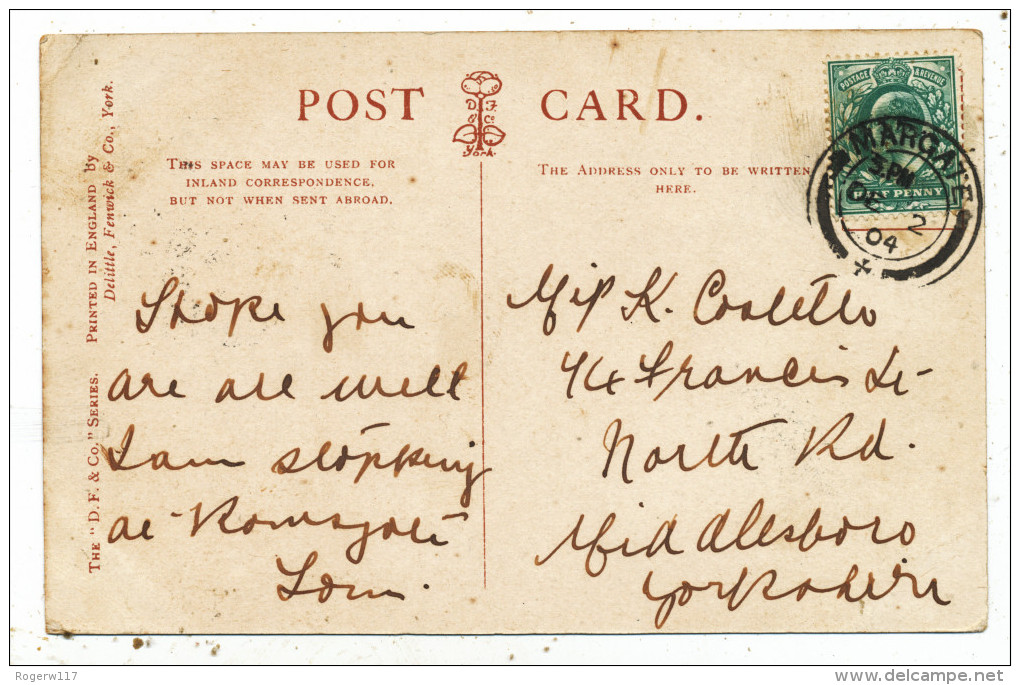 POST CARD.
D. F.
& Co
York.
THIS SPACE MAY BE USED FOR
INLAND CORRESPONDENCE,
BUT NOT WHEN SENT ABROAD.
THE ADDRESS ONLY TO BE WRITTEN
HERE.
POSTAGE & REVENUE
HALF PENNY
MARGATE
3.PM
DE 2
04
THE "D. F. & CO." SERIES. PRINTED IN ENGLAND by
Delittle, Fenwick & Co., York.
I hope you
are all well
I am stopping
at Ramsgate
Tom.
Miss K. Costello
74 Francis St
North Rd.
Middlesboro
Yorkshire
Rogerw117
delcampe.net